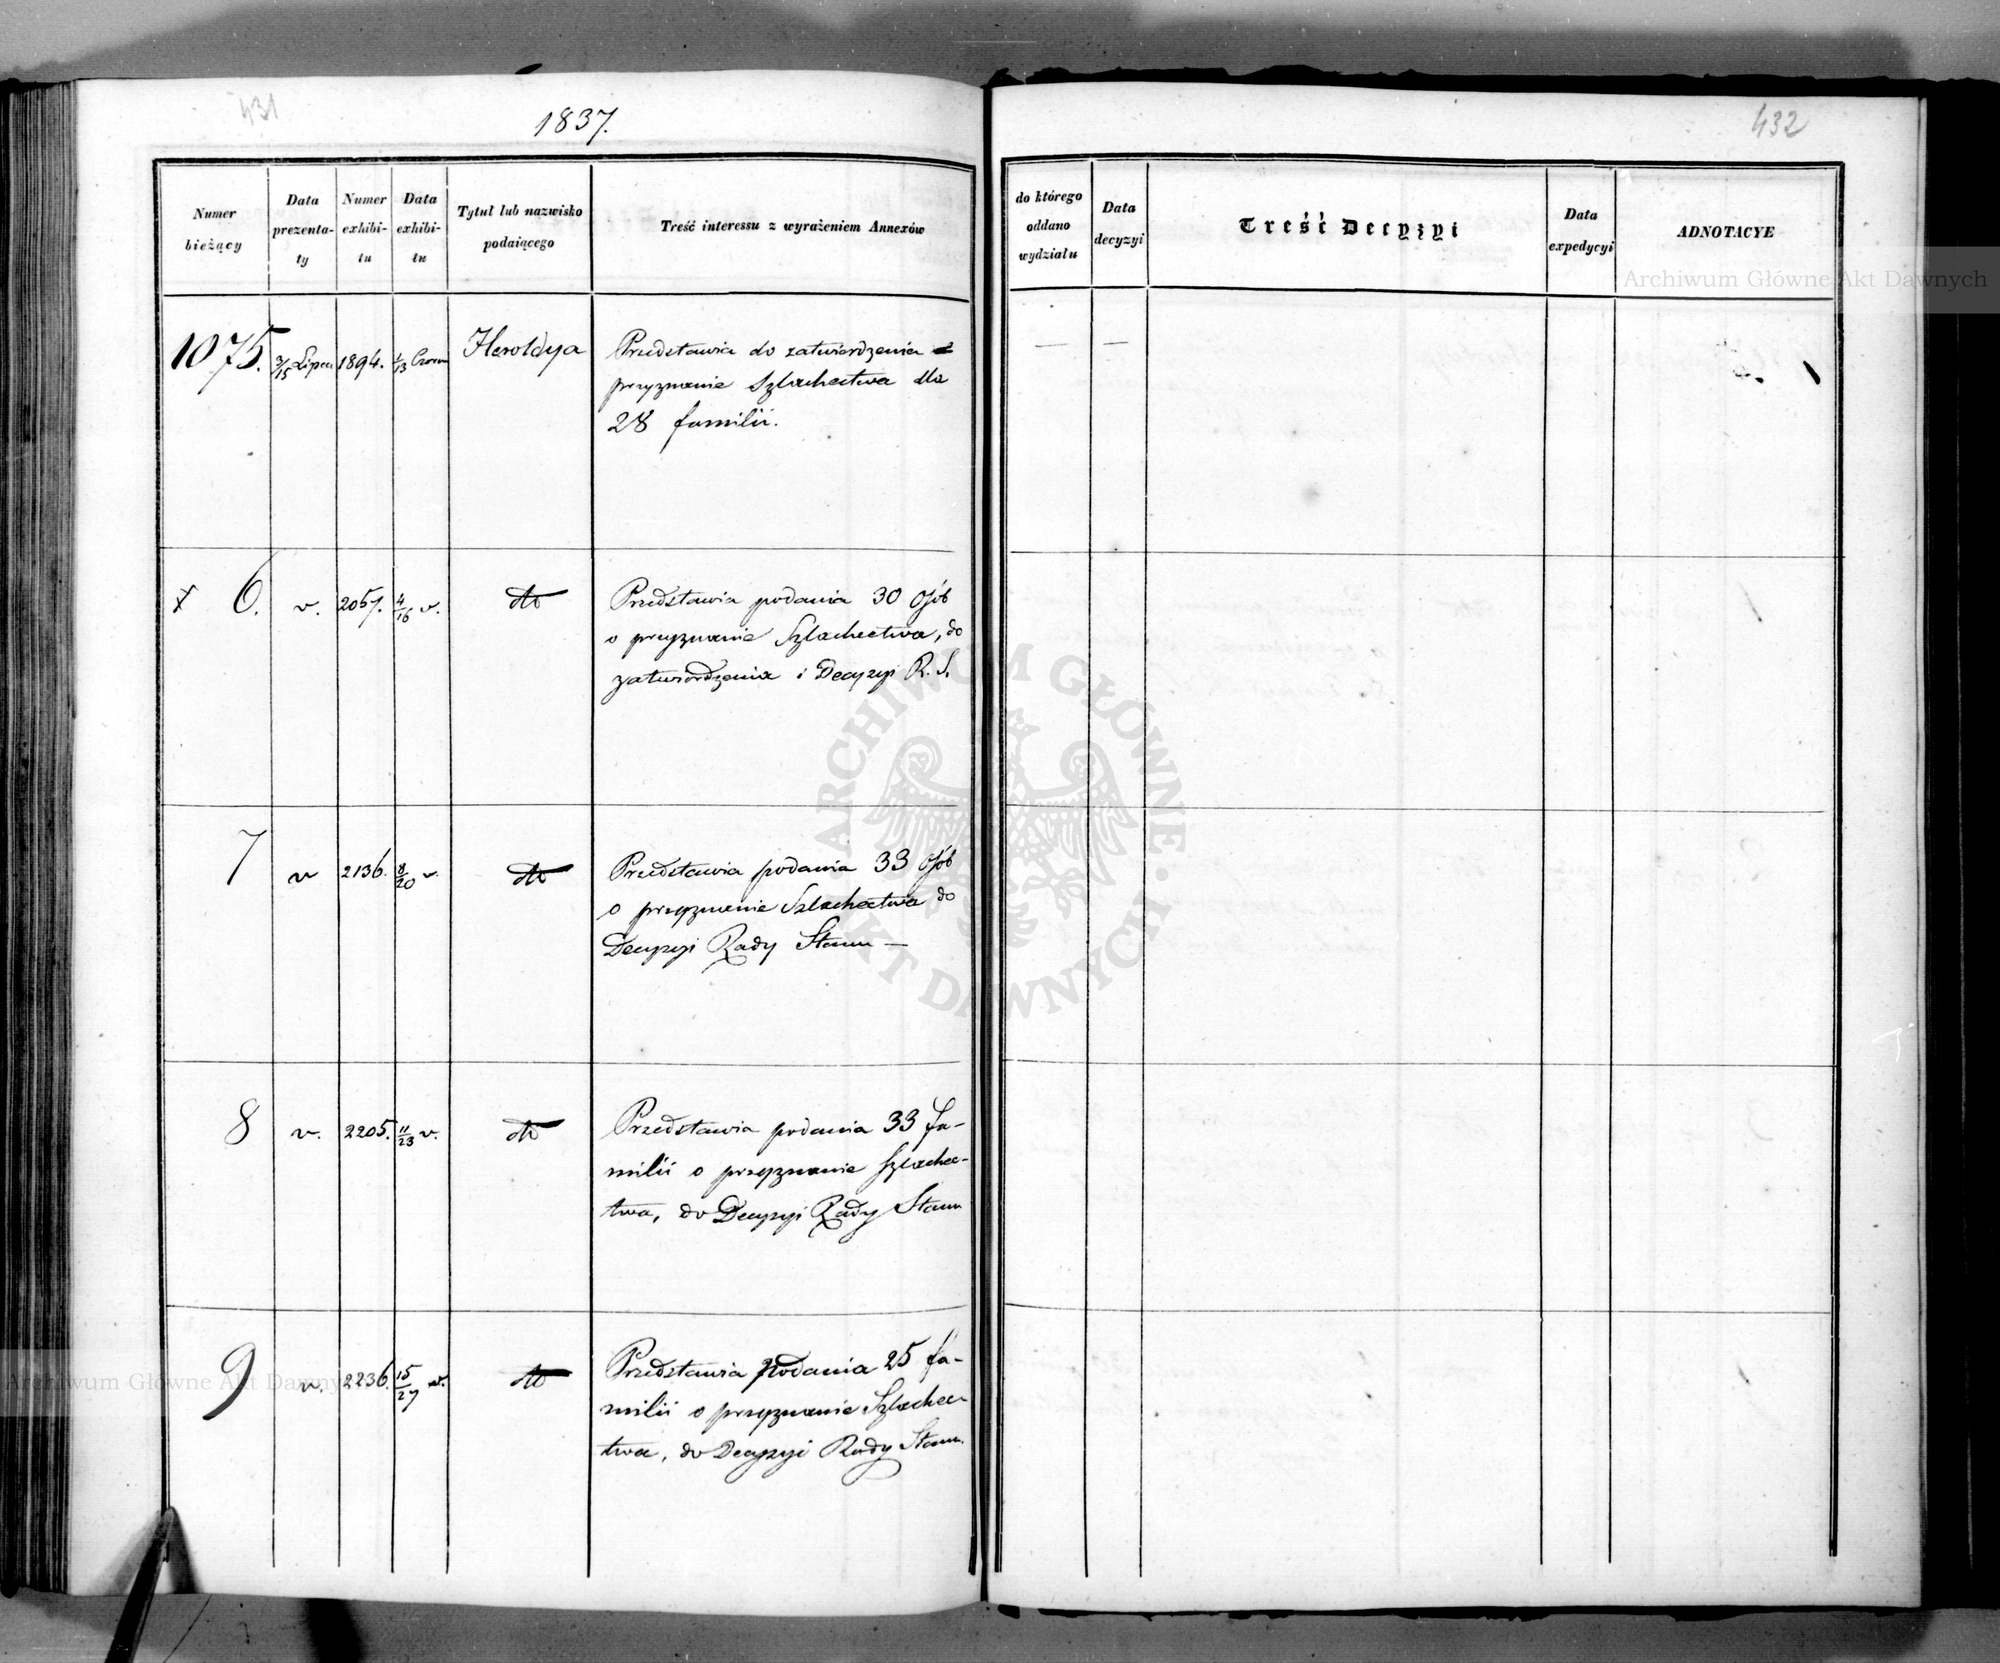 431
1837.
432
Numer
bieżący
Data
prezenta-
ty
Numer
exhibi-
tu
Data
exhibi-
tu
Tytuł lub nazwisko
podaiącego
Treść interessu z wyrażeniem Annexów
do którego
oddano
wydziału
Data
decyzyi
Treść Decyzyi
Data
expedycyi
ADNOTACYE
Archiwum Główne Akt Dawnych
1075. 3/15 Lipca 1894. 1/13 Czerw Heroldya
Przedstawia do zatwierdzenia
przyznanie Szlachectwa dla
28 familii.
— —
6. v. 2057. 4/16 v. dto
Przedstawia podania 30 Osób
o przyznanie Szlachectwa, do
zatwierdzenia i Decyzyi R. S.
7 v 2136. 8/20 v. dto
Przedstawia podania 33 Osób
o przyznanie Szlachectwa do
Decyzyi Rady Stanu —
8 v. 2205. 11/23 v. dto
Przedstawia podania 33 fa-
milii o przyznanie Szlachec-
twa, do Decyzyi Rady Stanu
9 v. 2236. 15/27 v. dto
Przedstawia podania 25 fa-
milii o przyznanie Szlachec-
twa, do Decyzyi Rady Stanu
ARCHIWUM GŁÓWNE AKT DAWNYCH
Archiwum Główne Akt Dawnych